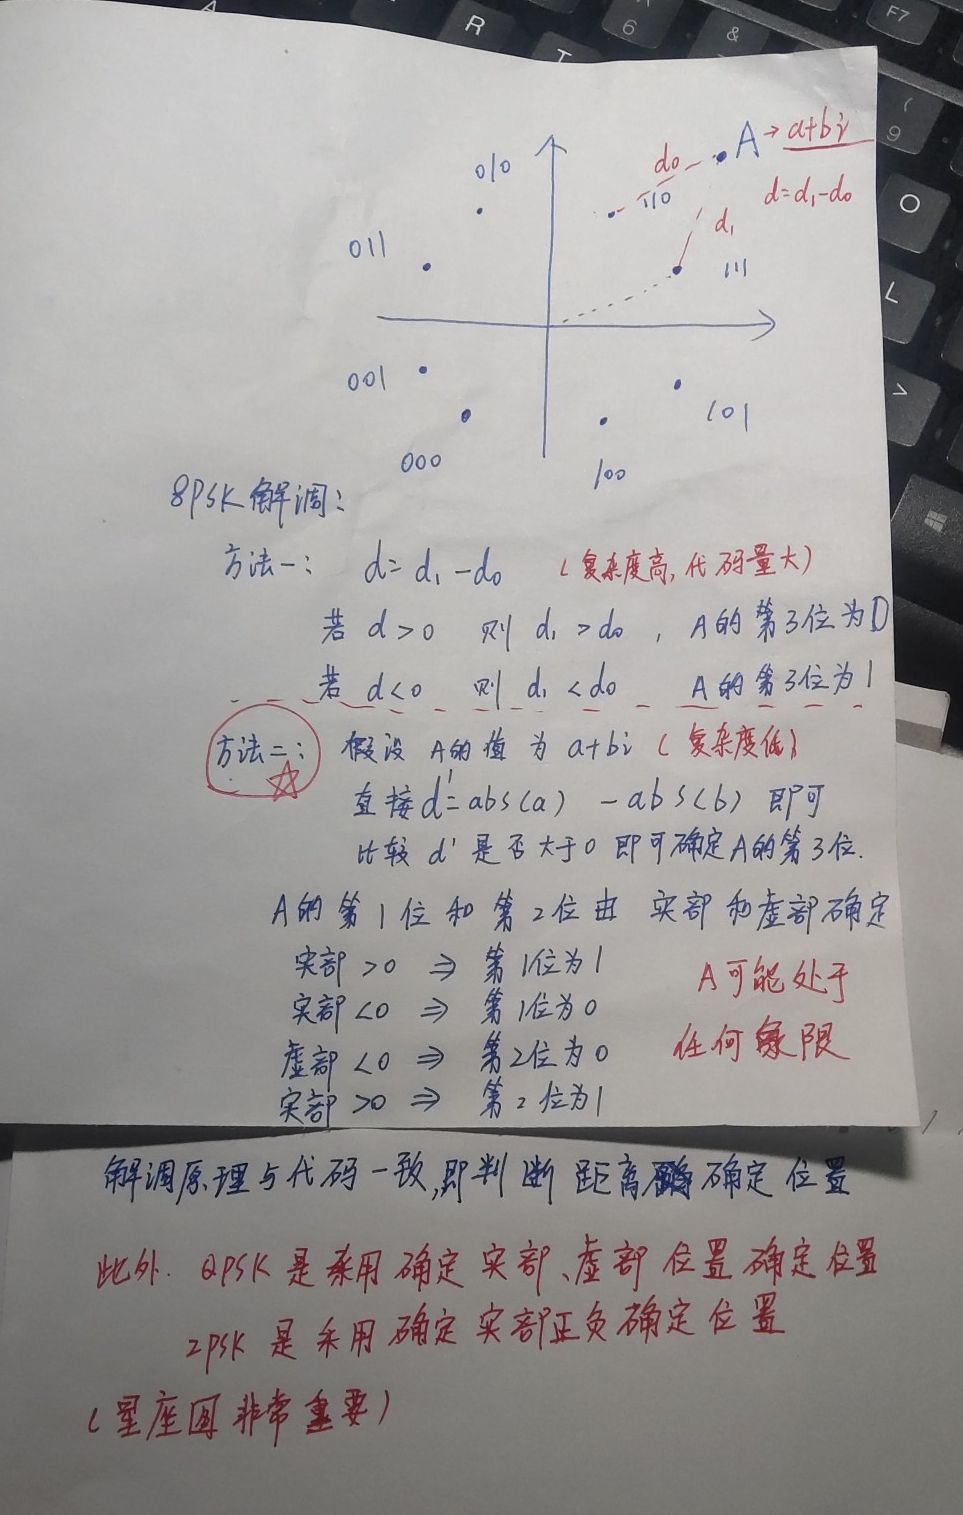 R
T
6
&
F7
(
9
O
L
>
A → a+bi
d0
010
110
d=d1-d0
d1
011
111
001
101
000
100
8PSK解调:
方法一: d= d1 -d0 (复杂度高,代码量大)
若 d>0 则 d1 >d0 , A的第3位为0
若 d<0 则 d1 <d0 A的第3位为1
方法二: 假设 A的值为 a+bi (复杂度低)
直接d'=abs(a) -abs(b) 即可
比较 d' 是否大于0 即可确定A的第3位.
A的第1位和第2位由 实部和虚部确定
实部 >0 ⇒ 第1位为1
实部 <0 ⇒ 第1位为0
虚部 <0 ⇒ 第2位为0
实部 >0 ⇒ 第2位为1
A可能处于
任何象限
解调原理与代码一致,即判断距离 确定位置
此外. QPSK是采用确定实部、虚部位置确定位置
2PSK是采用确定实部正负确定位置
(星座图非常重要)